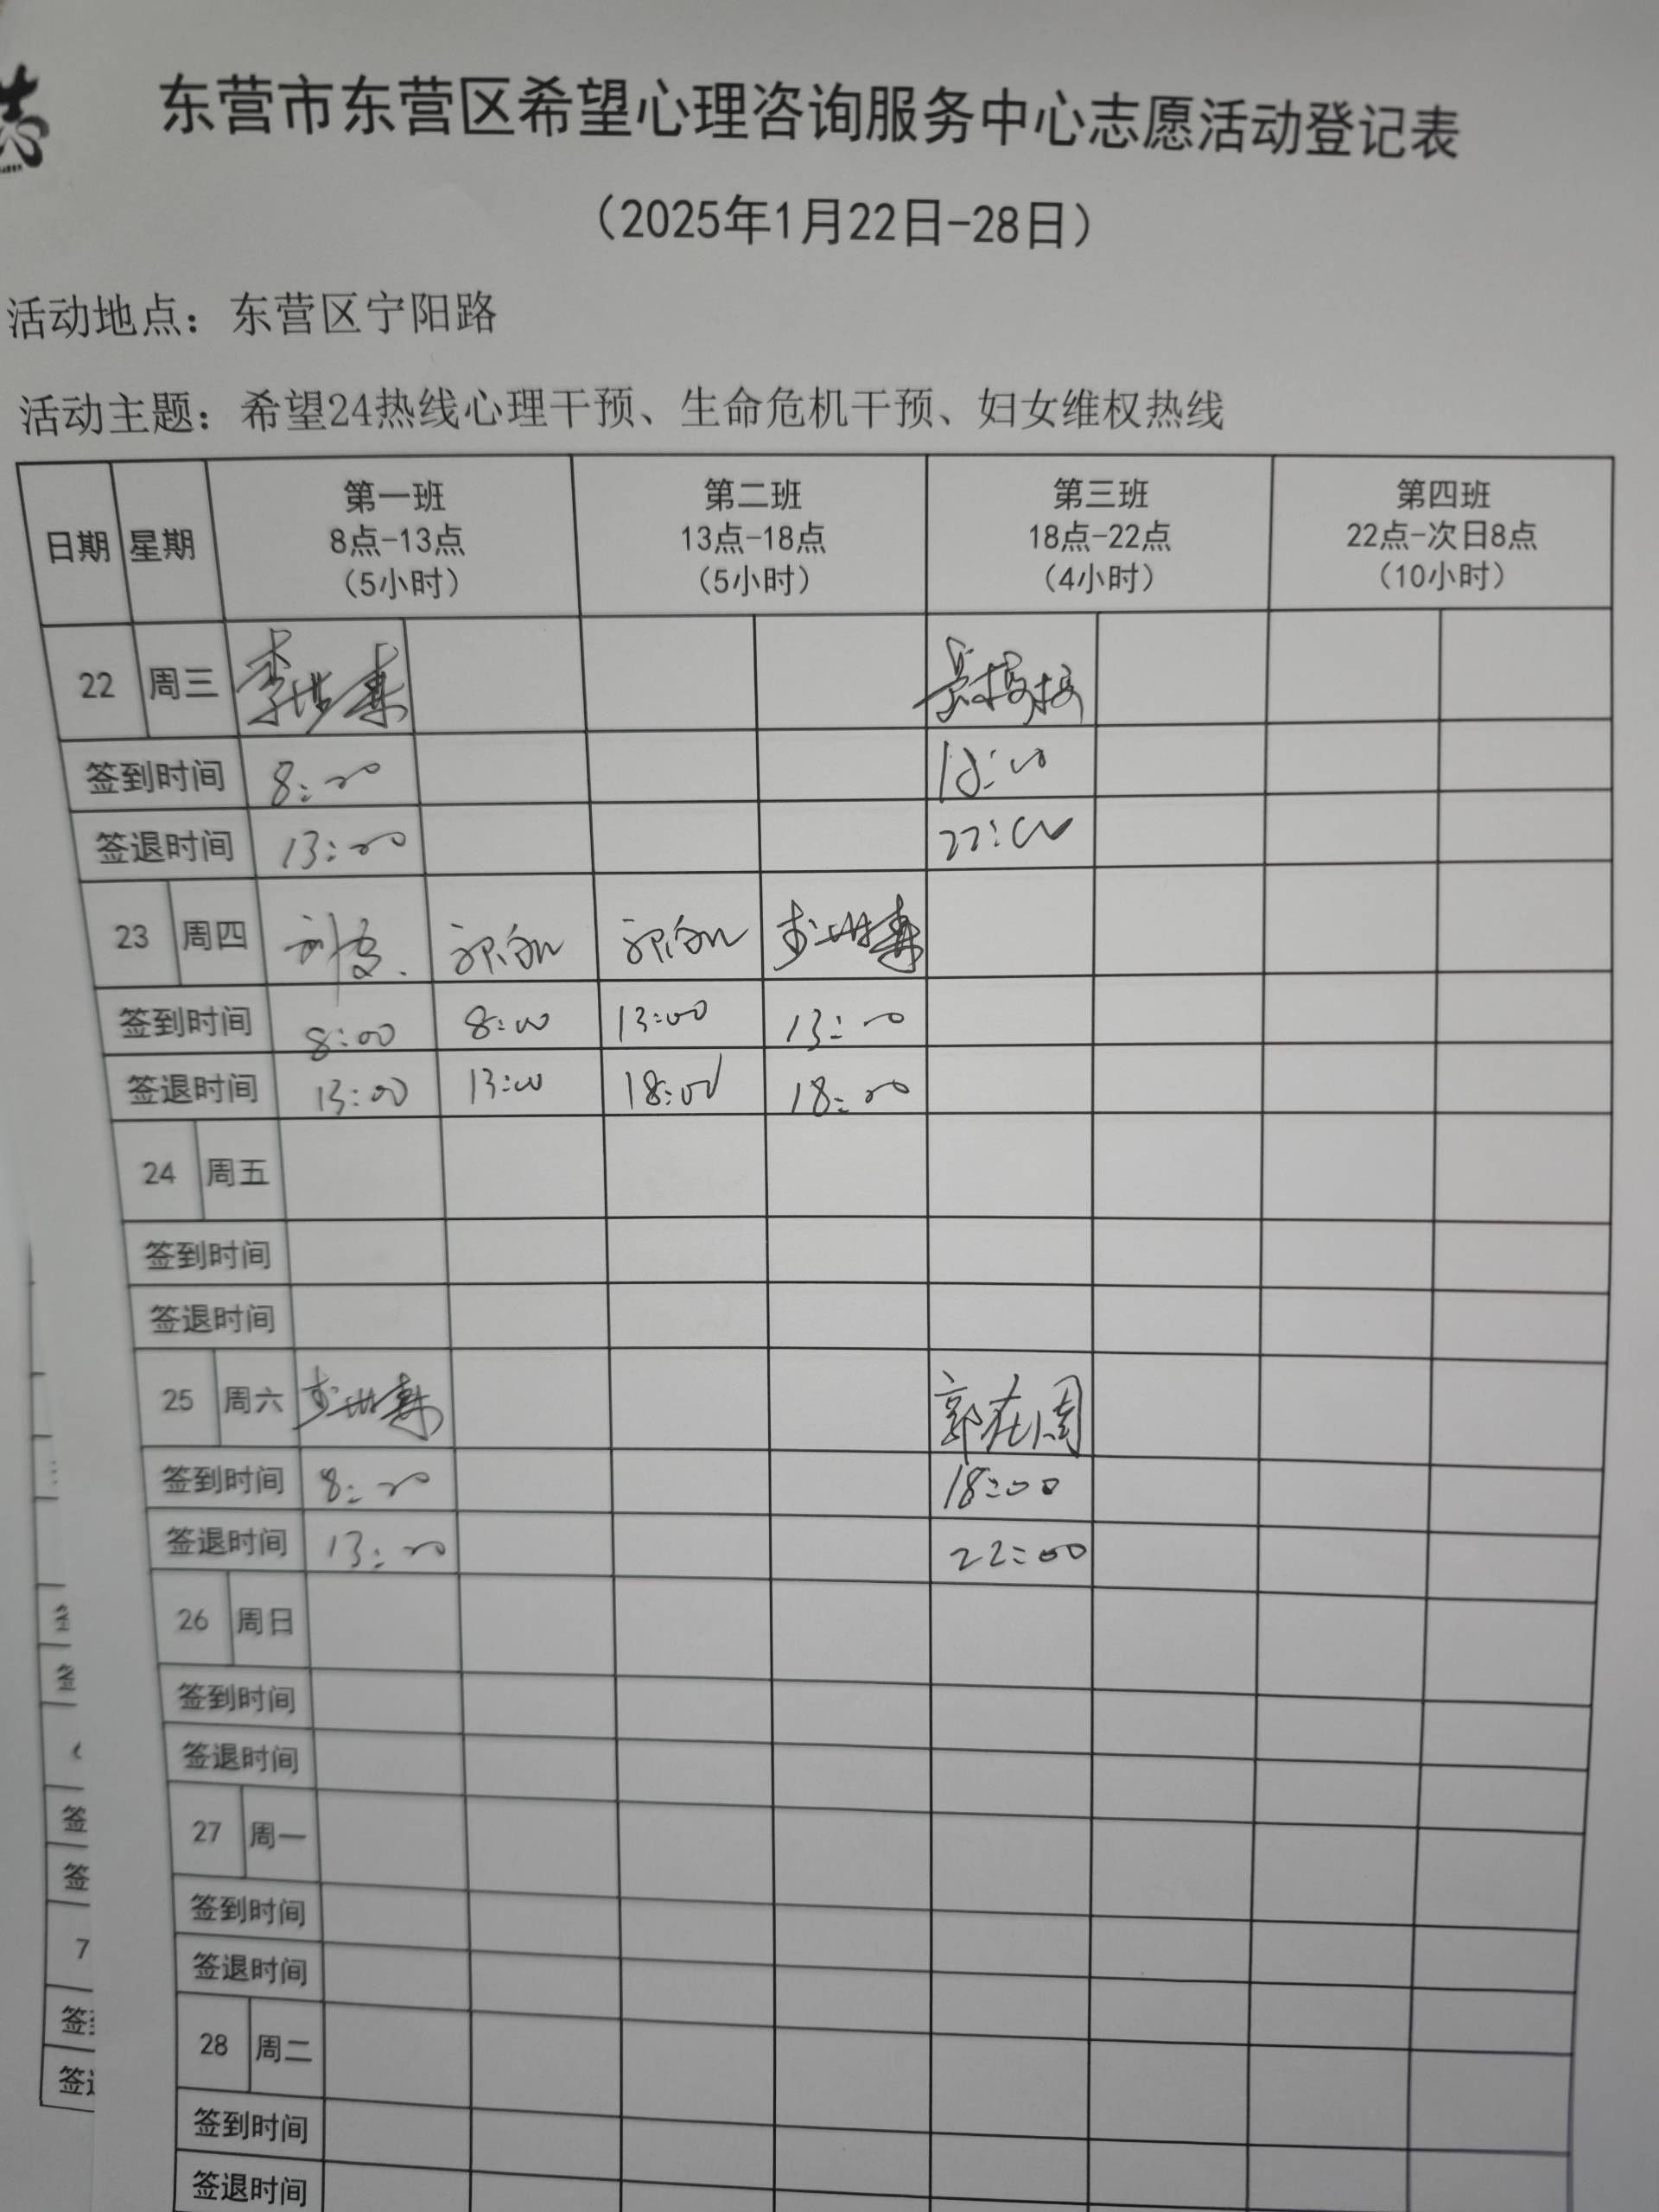 东营市东营区希望心理咨询服务中心志愿活动登记表
（2025年1月22日-28日）
活动地点：东营区宁阳路
活动主题：希望24热线心理干预、生命危机干预、妇女维权热线
日期 星期 第一班 8点-13点 （5小时） 第二班 13点-18点 （5小时） 第三班 18点-22点 （4小时） 第四班 22点-次日8点 （10小时）
22 周三
签到时间 8:00 18:00
签退时间 13:00 22:00
23 周四
签到时间 8:00 8:00 13:00 13:00
签退时间 13:00 13:00 18:00 18:00
24 周五
签到时间
签退时间
25 周六 郭在周
签到时间 8:00 18:00
签退时间 13:00 22:00
26 周日
签到时间
签退时间
27 周一
签到时间
签退时间
28 周二
签到时间
签退时间